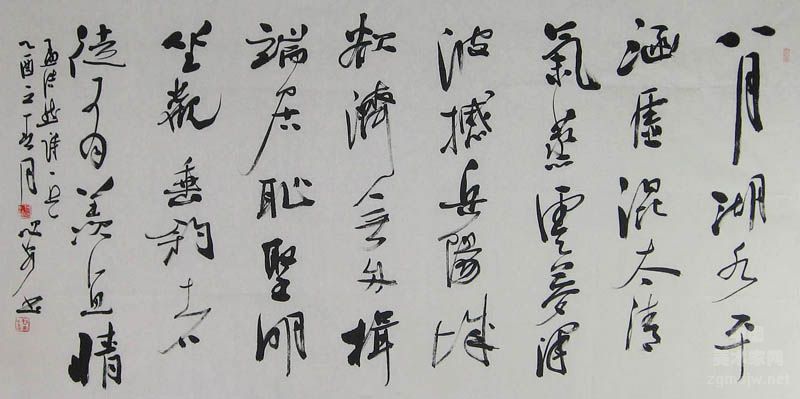 八月湖水平
涵虚混太清
氣蒸雲夢澤
波撼岳陽城
欲濟無舟楫
端居耻聖明
坐觀垂釣者
徒有羡魚情
孟浩然詩一首
乙酉之
月
书
美术家网
zgmsjw.net